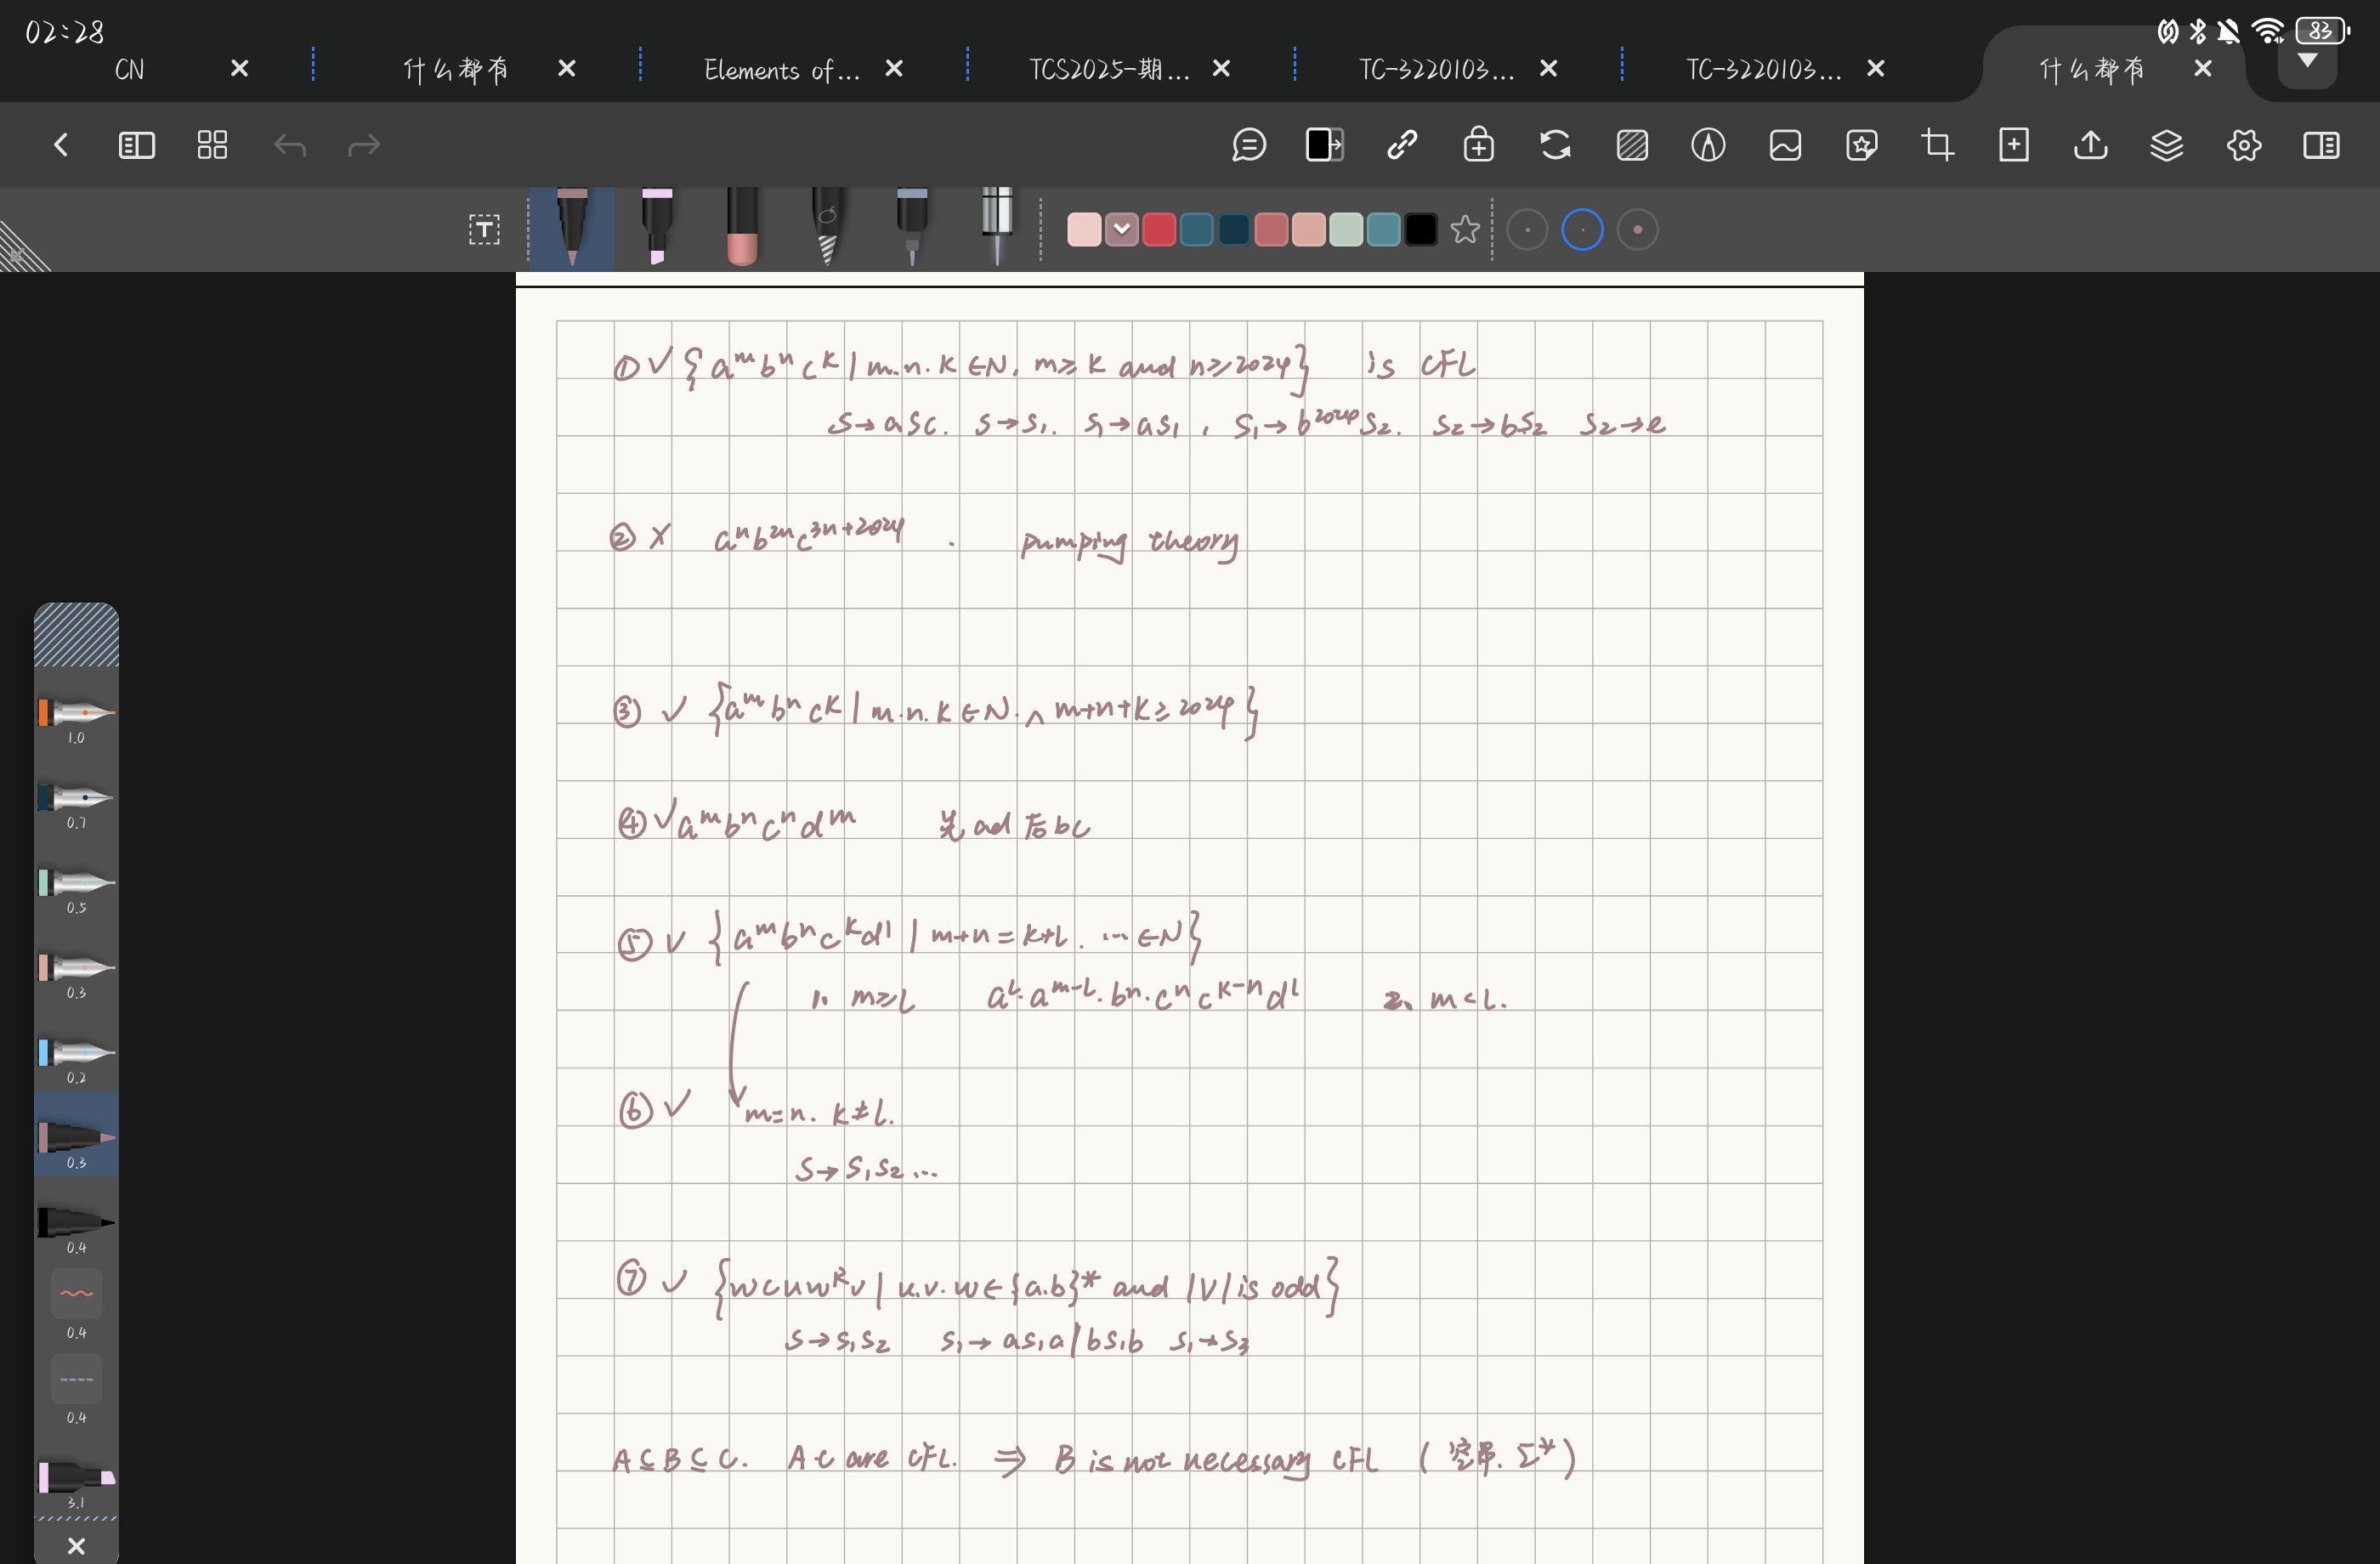 02:28
83
CN
什么都有
Elements of...
TCS2025-期...
TC-3220103...
TC-3220103...
什么都有
T
① ✓ {aᵐbⁿcᴷ | m.n.K ∈N, m≥K and n≥2024} is CFL
S→aSc. S→S₁. S₁→aS₁, S₁→b²⁰²⁴S₂. S₂→bS₂ S₂→e
② X aⁿb²ⁿc³ⁿ⁺²⁰²⁴. pumping theory
③ ✓ {aᵐbⁿcᴷ | m.n.K ∈N. ∧ m+n+K≥2024}
④ ✓ aᵐbⁿcⁿdᵐ 先ad后bc
⑤ ✓ {aᵐbⁿcᴷdˡ | m+n=K+L. ...∈N}
1. m≥L aᴸ·aᵐ⁻ᴸ·bⁿ·cⁿcᴷ⁻ⁿdᴸ 2. m<L.
⑥ ✓ m=n. K≠L.
S→S₁S₂...
⑦ ✓ {wcuwᴿv | u.v.w∈{a.b}* and |V| is odd}
S→S₁S₂ S₁→aS₁a|bS₁b S₁→S₃
A⊆B⊆C. A.C are CFL. ⇒ B is not necessary CFL (空串. Σ*)
1.0
0.7
0.5
0.3
0.2
0.3
0.4
0.4
0.4
3.1